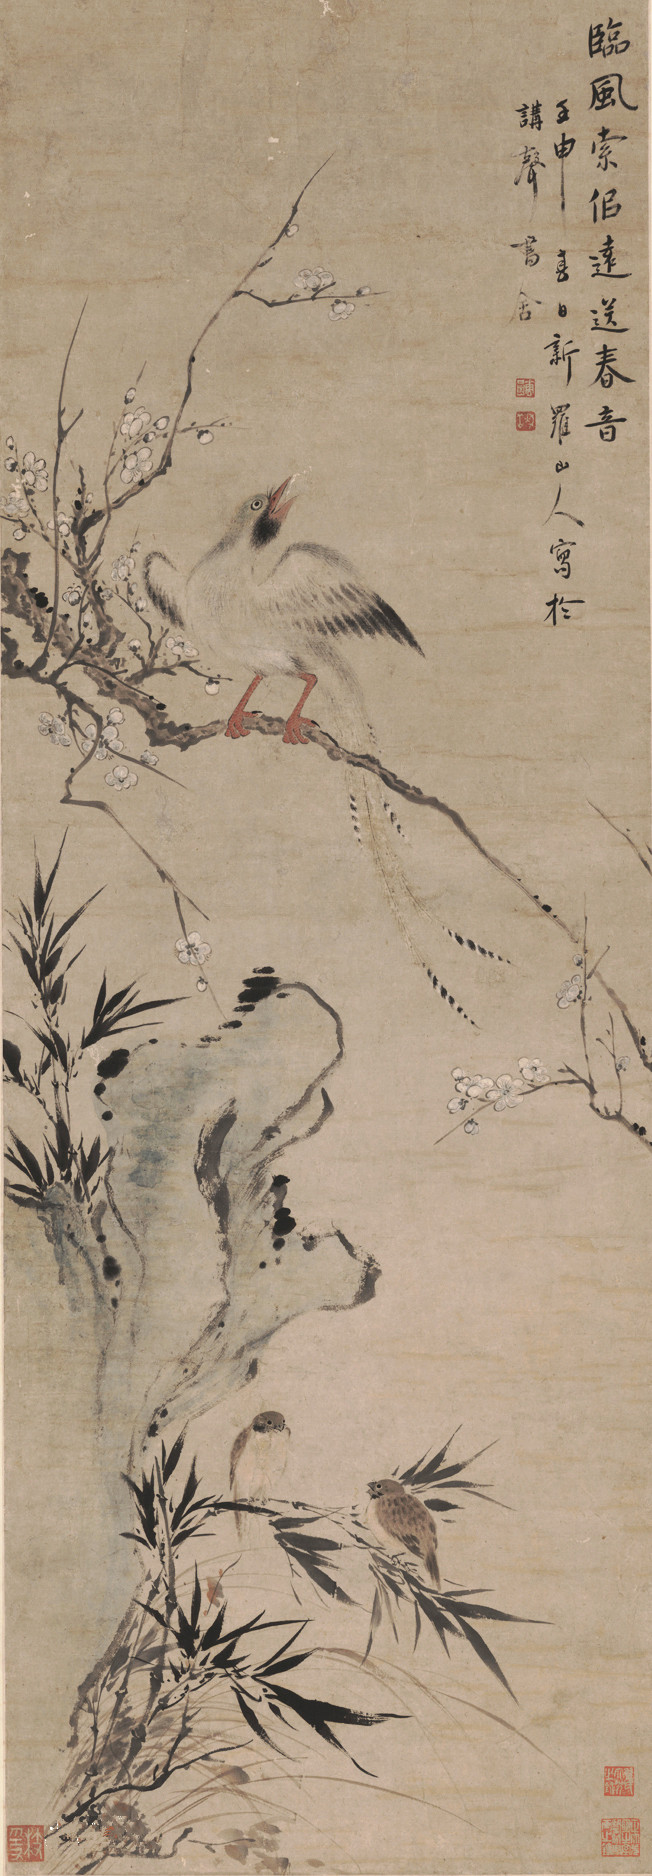 臨風索侶遠送春音
壬申春日新羅山人寫於
講聲書舍